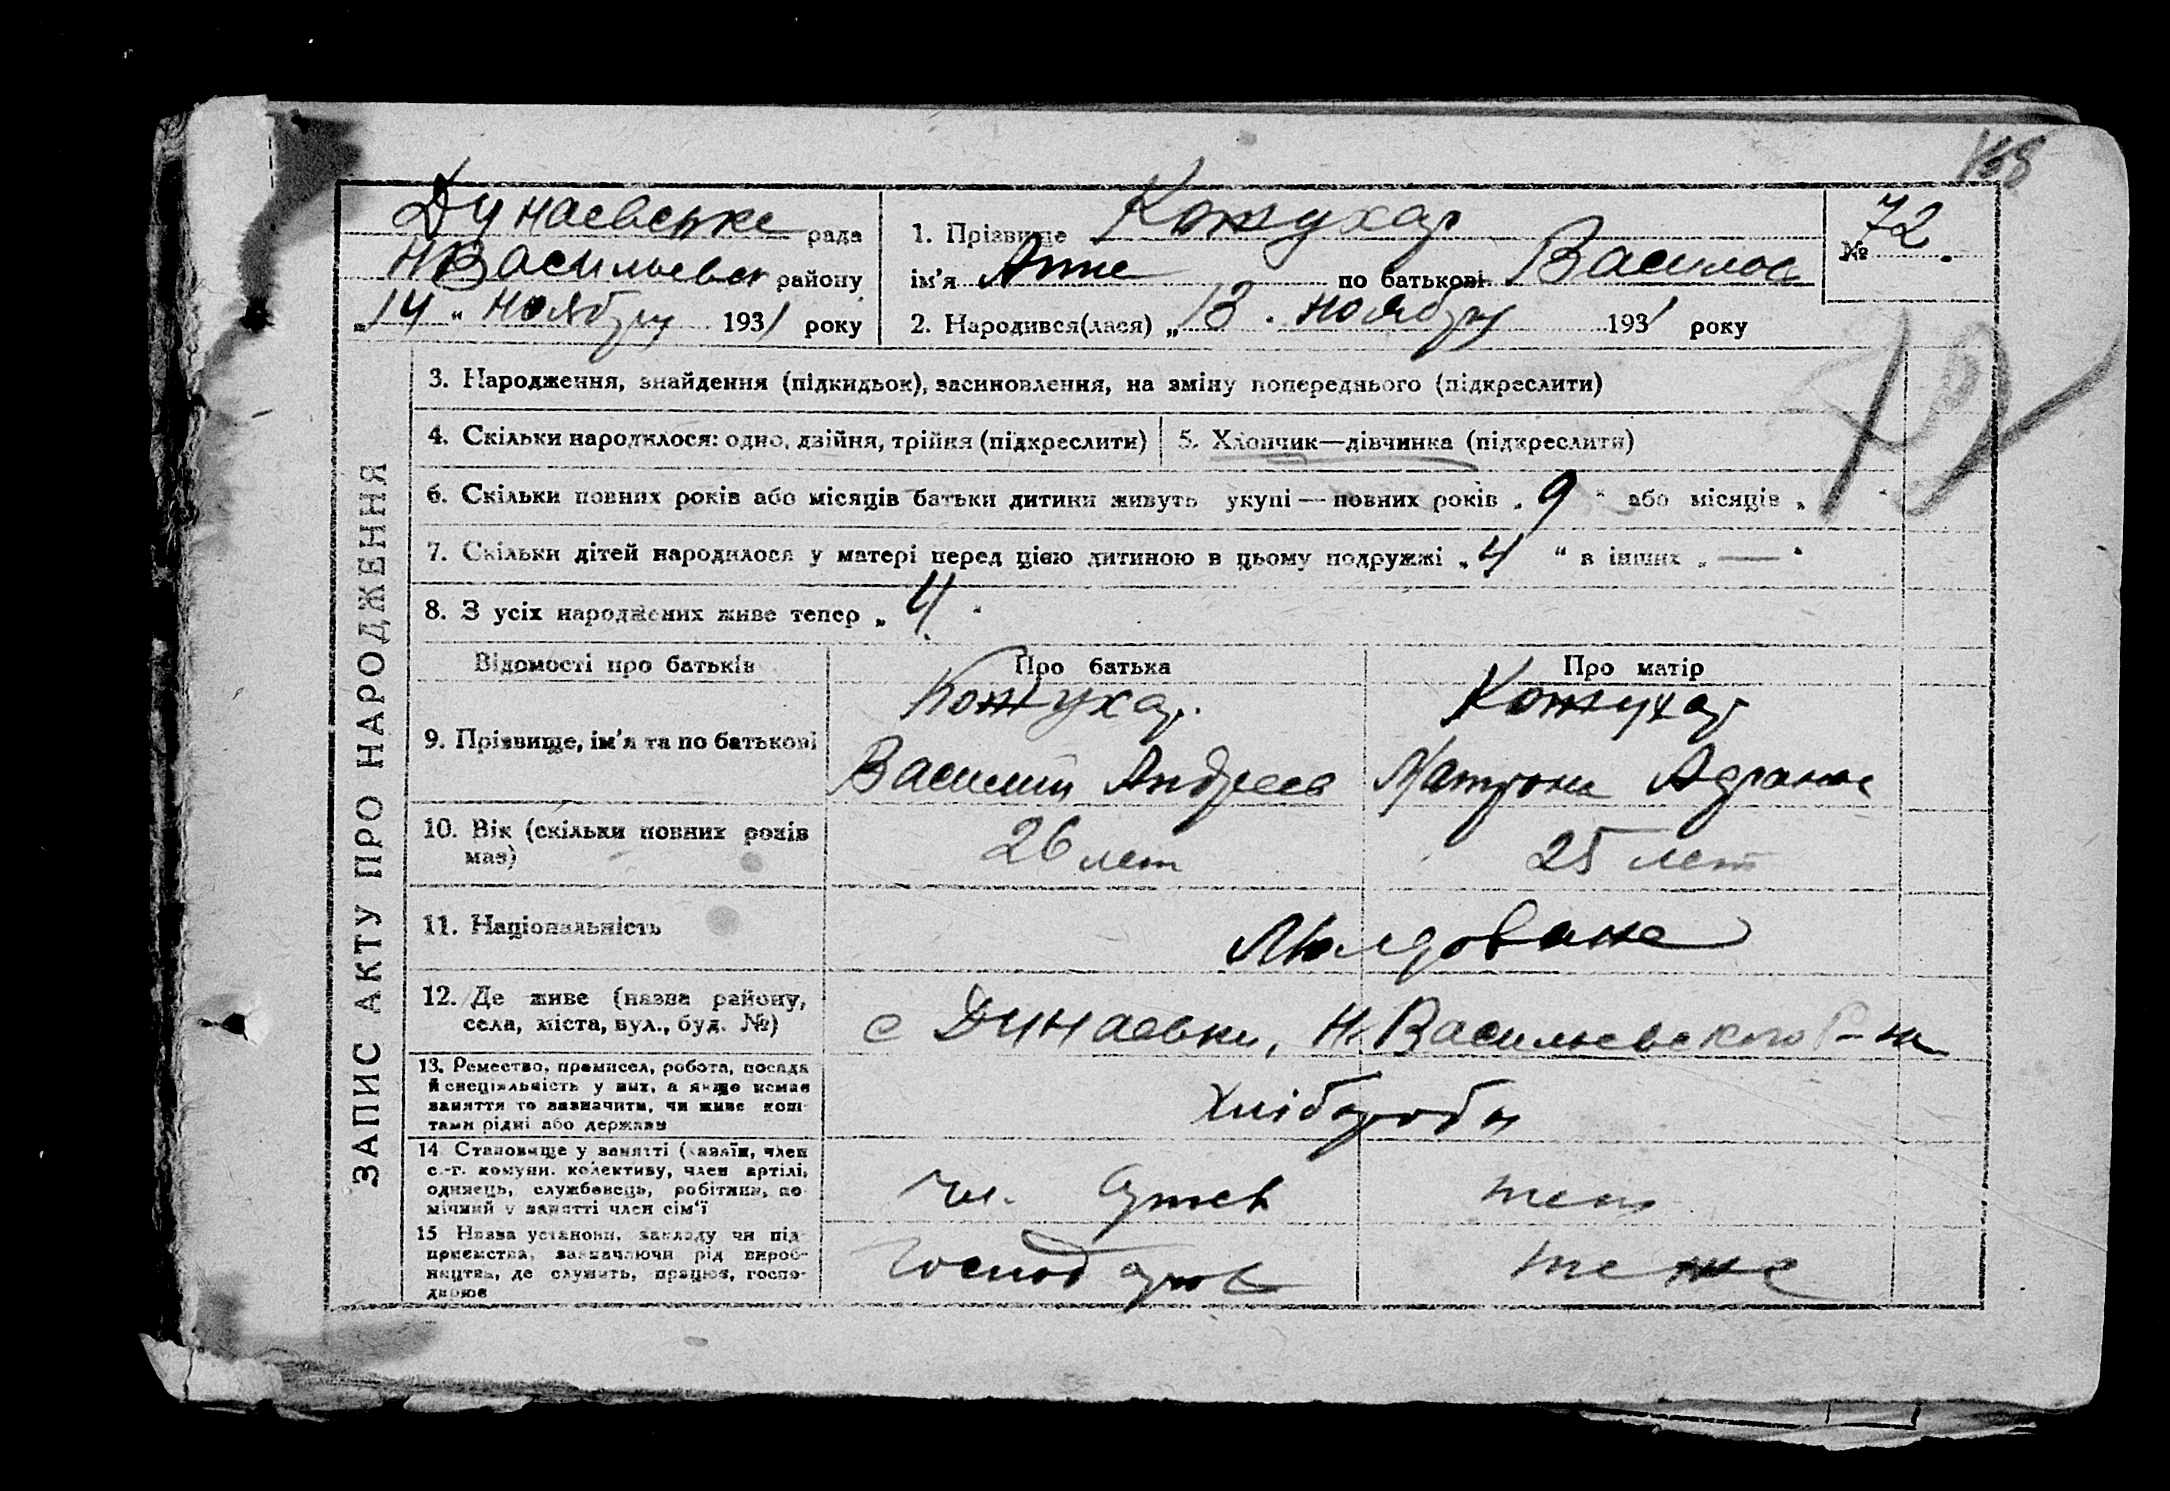 168
Дунаевське рада
НВасильевск району
„14“ ноября 1931 року
1. Прізвище Кожухар
ім'я Анна по батькові Василов
2. Народився(лася) „13. ноября 1931 року
№ 72.
72
ЗАПИС АКТУ ПРО НАРОДЖЕННЯ
3. Народження, знайдення (підкидьок), засиновлення, на зміну попереднього (підкреслити)
4. Скільки народилося: одно, двійня, трійня (підкреслити)
5. Хлопчик—дівчинка (підкреслити)
6. Скільки повних років або місяців батьки дитини живуть укупі — повних років „9“ або місяців „ “
7. Скільки дітей народилося у матері перед цією дитиною в цьому подружжі „4“ в інших „—“
8. З усіх народжених живе тепер „4.
Відомості про батьків Про батька Про матір
Кожухар. Кожухар
9. Прізвище, ім'я та по батькові
Василий Андреев Матрона
10. Вік (скільки повних років
має)
26 лет 25 лет
11. Національність Молдоване
12. Де живе (назва району,
села, міста, вул., буд. №)
с Дунаевки, Н. Васильевского Р-на
13. Ремество, промисел, робота, посада
й спеціяльність у них, а якще немає
заняття то зазначити, чи живе кош-
тами рідні або держави
Хлібороби
14 Становище у занятті (хазяїн, член
с.-г. комуни, колективу, член артілі,
одинець, службовець, робітник, по-
мічний у занятті член сім'ї
чл. артел
15 Назва установи, закладу чи під-
приємства, зазначаючи рід вироб-
ництва, де служить, працює, госпо-
дарює
господарюв то же